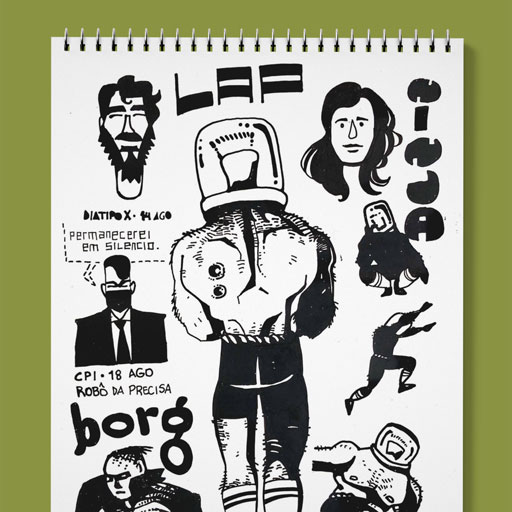 LAP
NINJA
DIATIPO X · 14 AGO
PERMANECEREI
EM SILENCIO.
CPI · 18 AGO
ROBÔ DA PRECISA
borgo